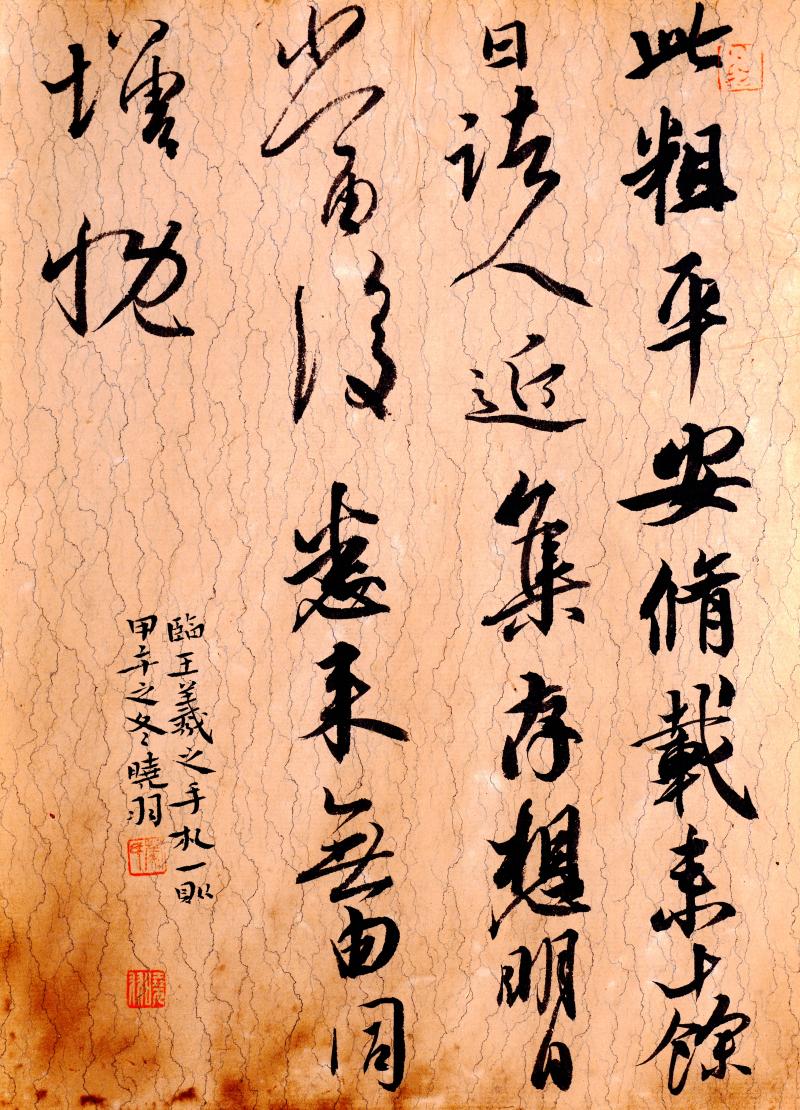 此粗平安脩載来十餘
日諸人近集存想明日
當復悉来無由同
增慨
臨王羲之手札一則
甲午之冬曉羽